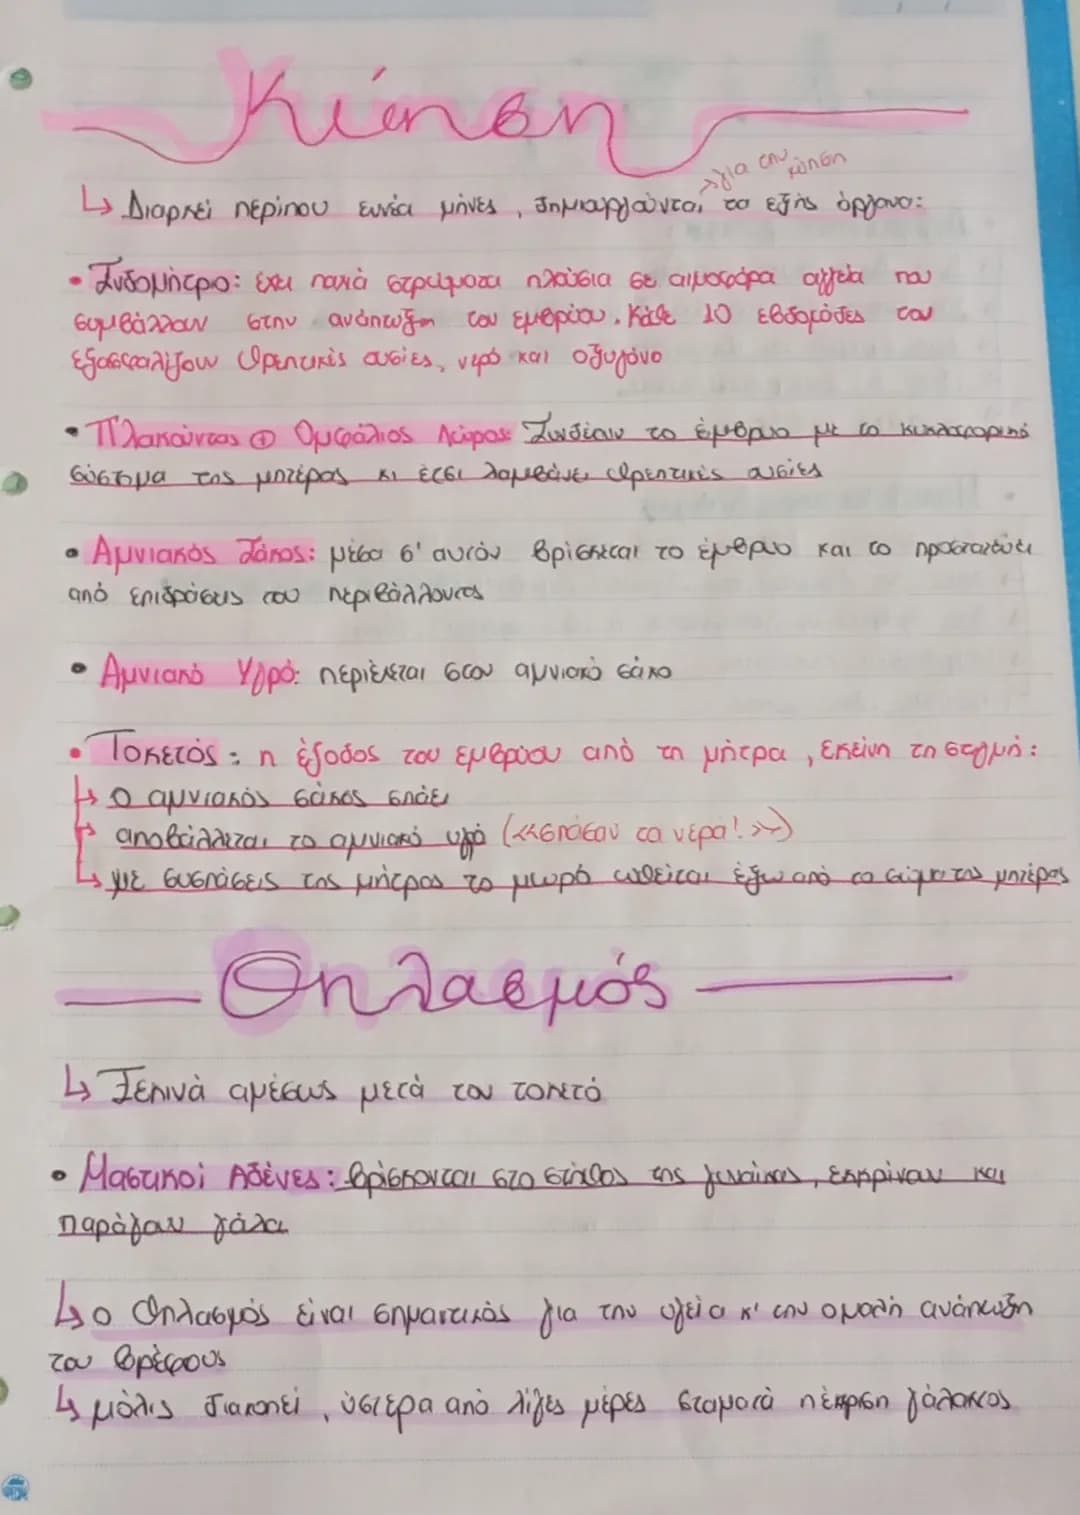 Κύηση
→για την κύηση
↳ Διαρκεί περίπου εννέα μήνες, δημιουργούνται τα εξής όργανα:
• Ενδομήτριο: έχει παχιά στρώματα πλούσια σε αιμοφόρα αγγεία που
συμβάλλουν στην ανάπτυξη του εμβρύου. Κάθε 10 εβδομάδες του
εξασφαλίζουν θρεπτικές ουσίες, νερό και οξυγόνο
• Πλακούντας ⊕ Ομφάλιος Λώρος: Συνδέουν το έμβρυο με το κυκλοφορικό
σύστημα της μητέρας κι έτσι λαμβάνει θρεπτικές ουσίες
• Αμνιακός Σάκος: μέσα σ' αυτόν βρίσκεται το έμβρυο και το προστατεύει
από επιδράσεις του περιβάλλοντος
• Αμνιακό Υγρό: περιέχεται στον αμνιακό σάκο
• Τοκετός: η έξοδος του εμβρύου από τη μήτρα, εκείνη τη στιγμή:
↳ ο αμνιακός σάκος σπάει
→ αποβάλλεται το αμνιακό υγρό (<<σπάσαν τα νερά!>>)
↳ με συσπάσεις της μήτρας το μωρό ωθείται έξω από το σώμα της μητέρας
Θηλασμός
↳ Ξεκινά αμέσως μετά τον τοκετό
• Μαστικοί Αδένες: βρίσκονται στο στήθος της γυναίκας, εκκρίνουν και
παράγουν γάλα
↳ ο θηλασμός είναι σημαντικός για την υγεία κ' την ομαλή ανάπτυξη
του βρέφους
↳ μόλις διακοπεί, ύστερα από λίγες μέρες σταματά η έκκριση γάλακτος